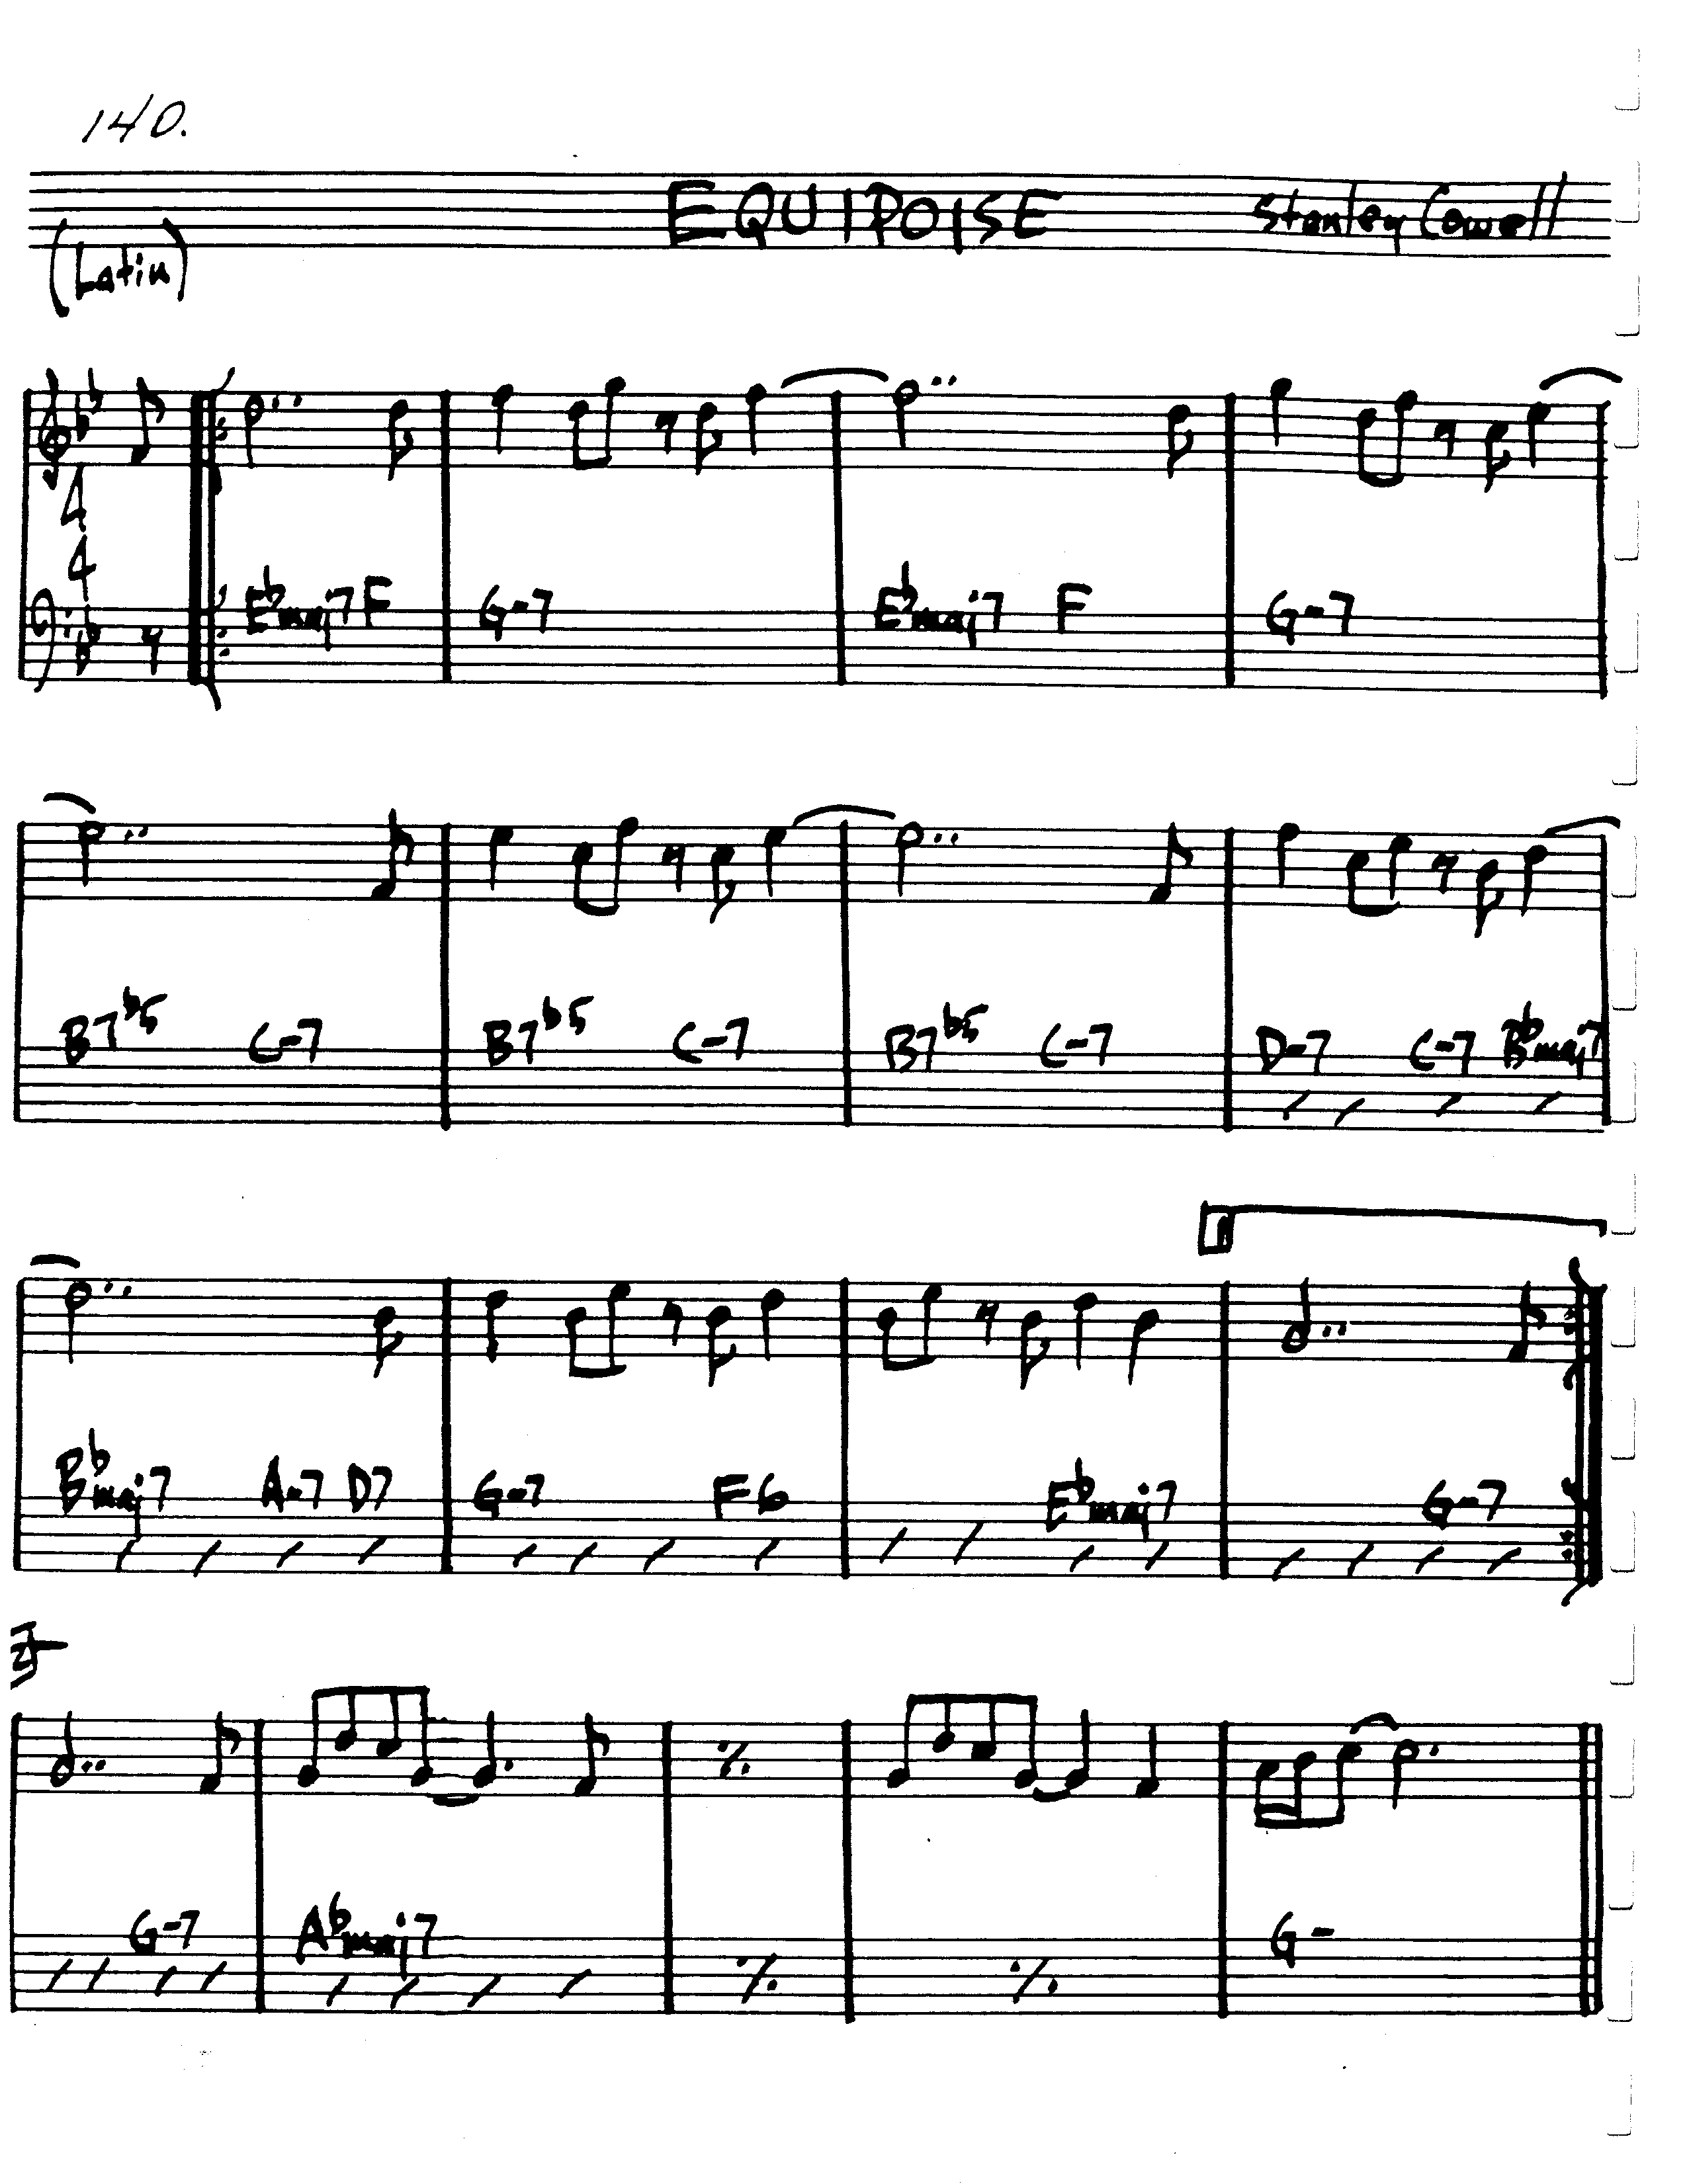 140.
EQUIPOISE Stanley Cowell
(Latin)
4
4
E♭maj7 F G-7 E♭maj7 F G-7
B7♭5 C-7 B7♭5 C-7 B7♭5 C-7 D-7 C-7 B♭maj7
B♭maj7 A-7 D7 G-7 F6 E♭maj7 G-7
G-7 A♭maj7 G-